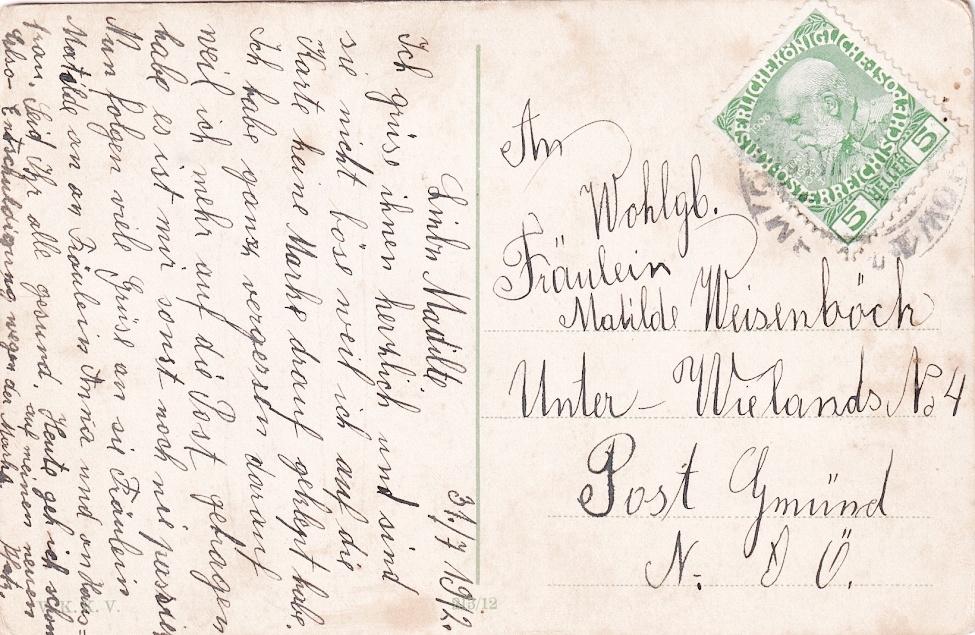 31./7 1912.
Liebe Madilte.
Ich grüse ihnen herzlich und sind
sie nicht böse weil ich auf die
Karte keine Marke drauf geklept habe.
Ich habe ganz vergessen darauf
weil ich mehr auf die Post getragen
habe es ist mir sonst noch nie passier
Nun folgen viele Grüse an sie Fräulein
Matilde an an Fräulein Anna und an Haus=
frau. Seid Ihr alle gesund. Heute geh ich schon
auf meinen neuen
also Entschuldigung wegen der Marke. Platz.
An
Wohlgb.
Fräulein
Matilde Weisenböck
Unter - Wielands No 4
Post Gmünd
N. Ö Ö.
KAISERLICHE KÖNIGLICHE
ÖSTERREICHISCHE POST
5 HELLER 5
W. K. K. V.
215/12